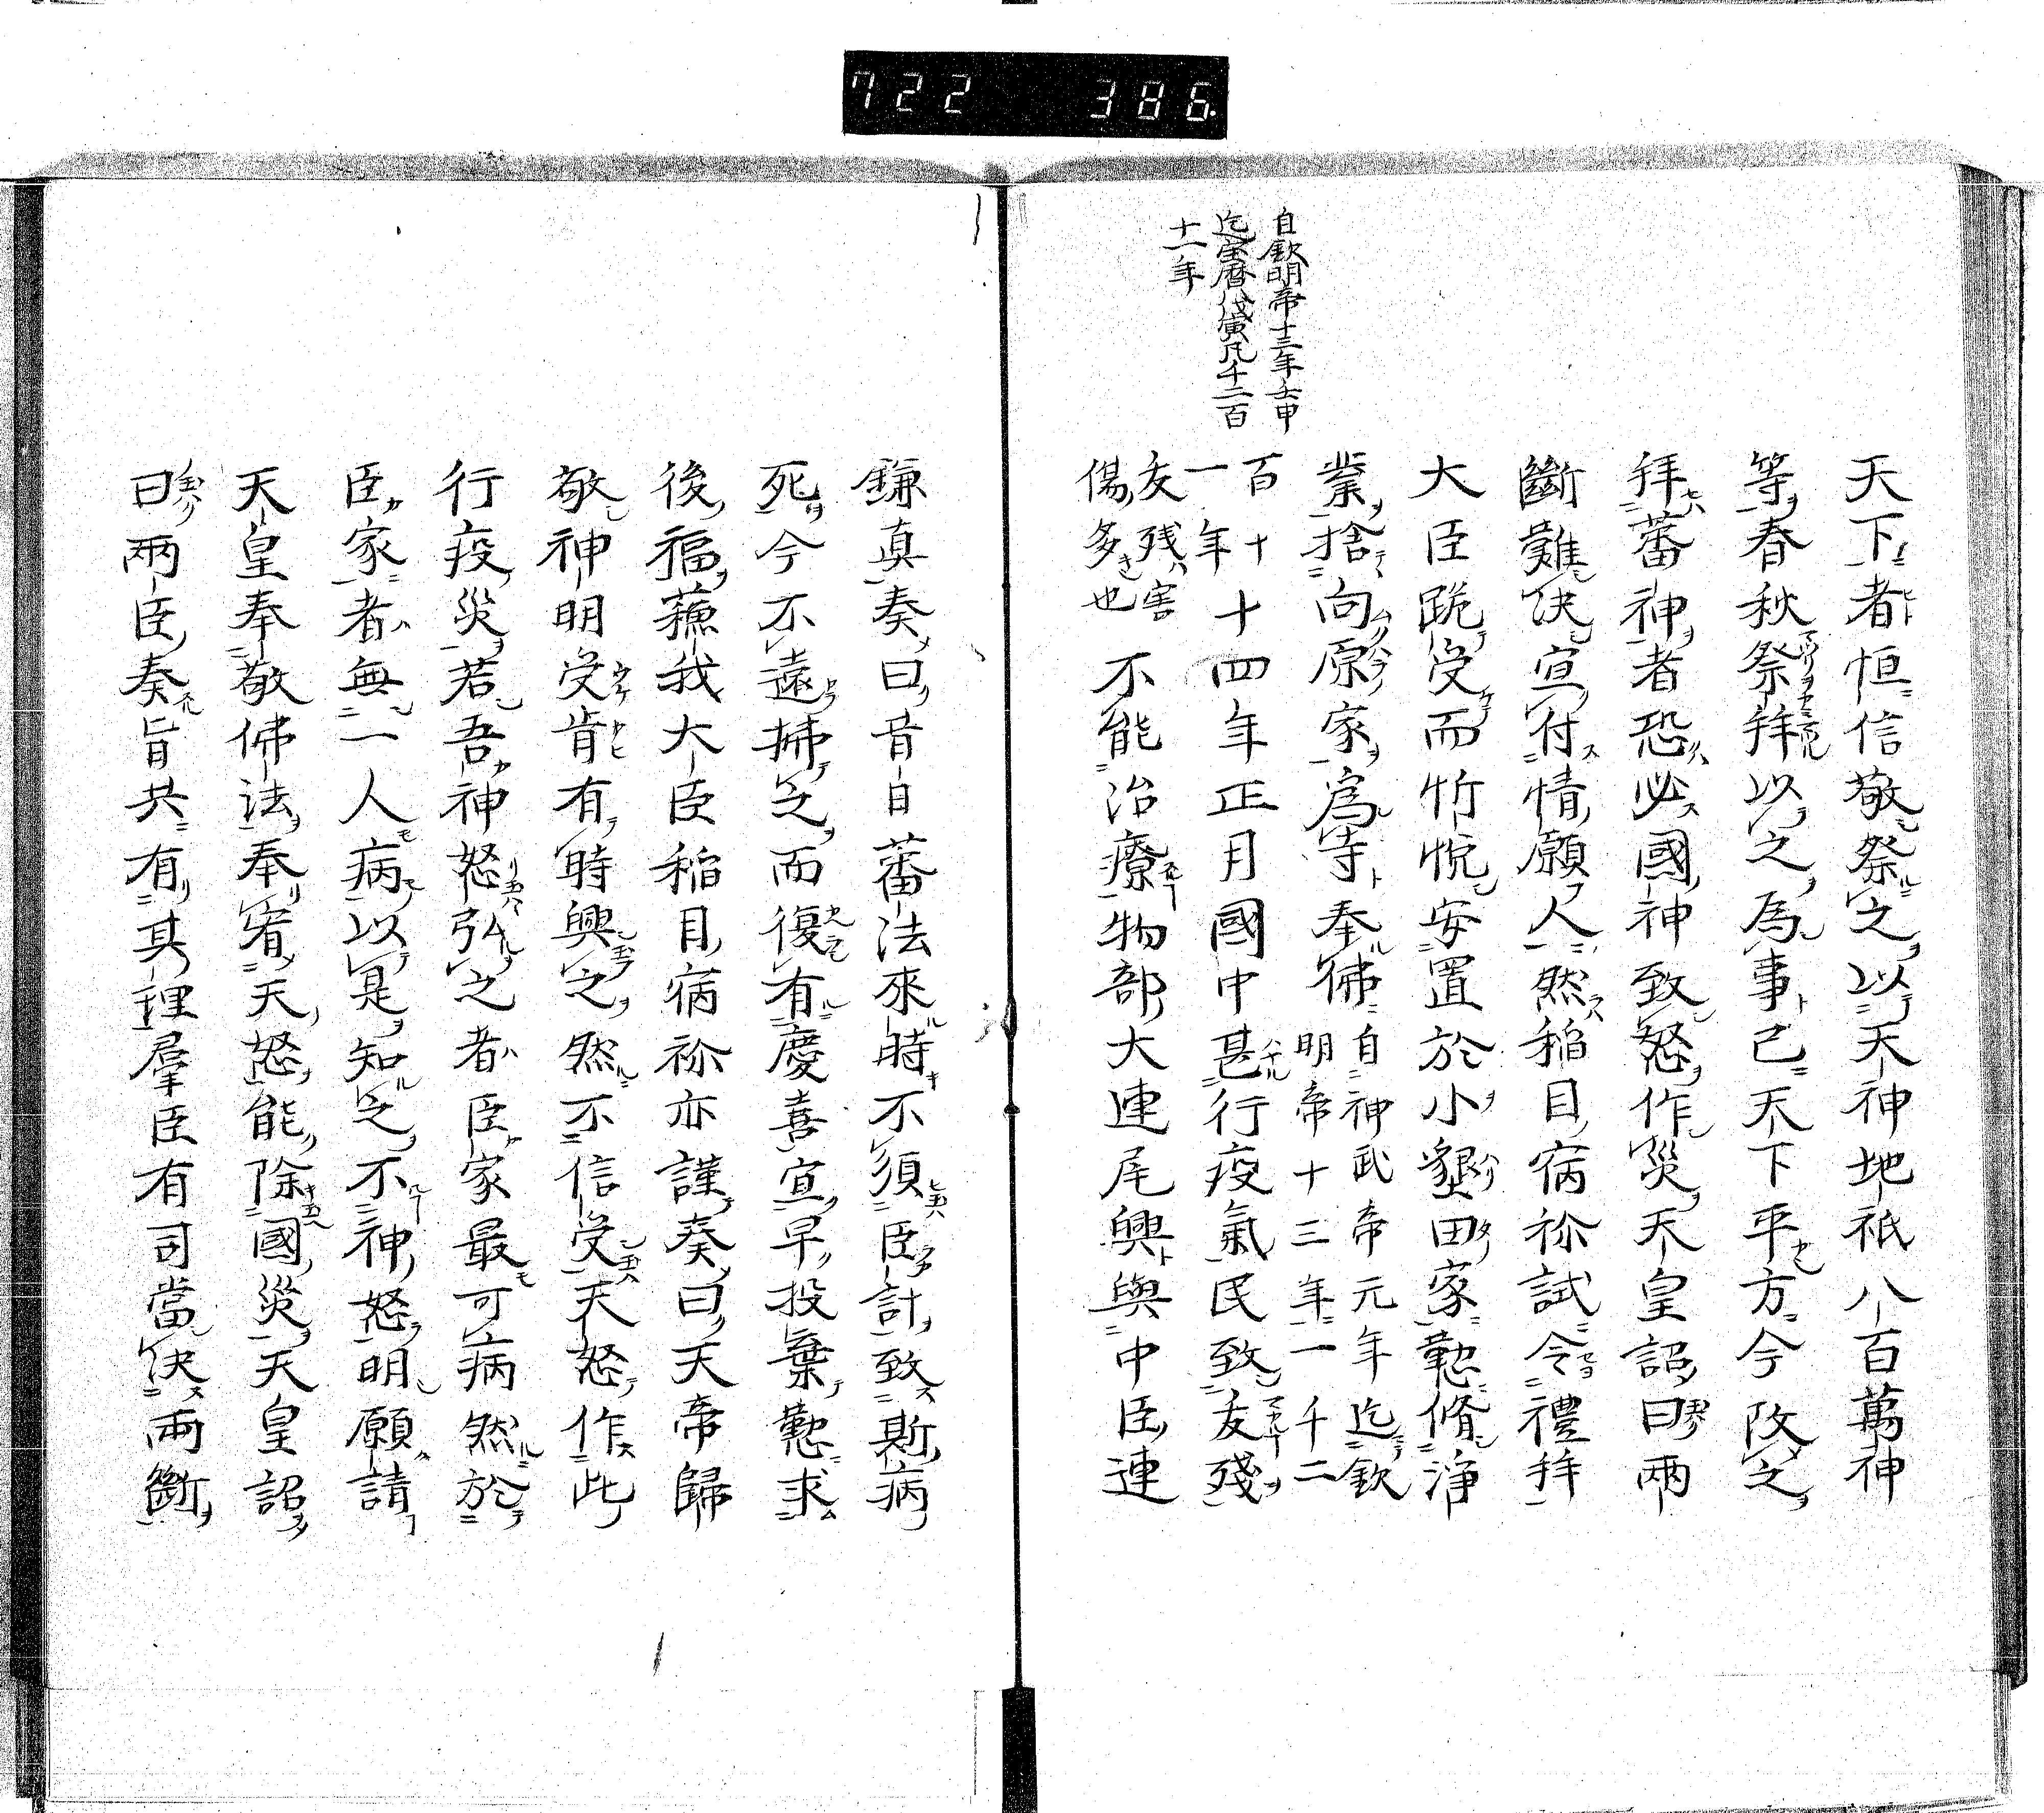 722 386
自欽明帝十三年壬申
迄宝暦八戊寅凡千二百
十一年
天下者恒信敬祭之以天神地祇八百萬神
等春秋祭拜以之為事已天下平方今改之
拜蕃神者恐必國神致怒作災天皇詔曰兩
斷難決宣付情願人然稲目病祢試令禮拜
大臣跪受而忻悦安置於小墾田家懃脩浄
業捨向原家為寺奉佛自神武帝元年迄欽
明帝十三年一千二
百十
一年十四年正月國中甚行疫氣民致夭殘
夭残害
傷多也不能治療物部大連尾興與中臣連
鎌真奏曰昔日蕃法來時不須臣計致斯病
死今不遠拂之而復有慶喜宣早投棄懃求
後福蘓我大臣稲目病祢亦謹奏曰天帝歸
敬神明受肯有時興之然不信受天怒作此
行疫災若吾神怒弘之者臣家最可病然於
臣家者無一人病以是知之不神怒明願請
天皇奉敬佛法奉宥天怒能除國災天皇詔
曰兩臣奏旨共有其理羣臣有司當決兩斷